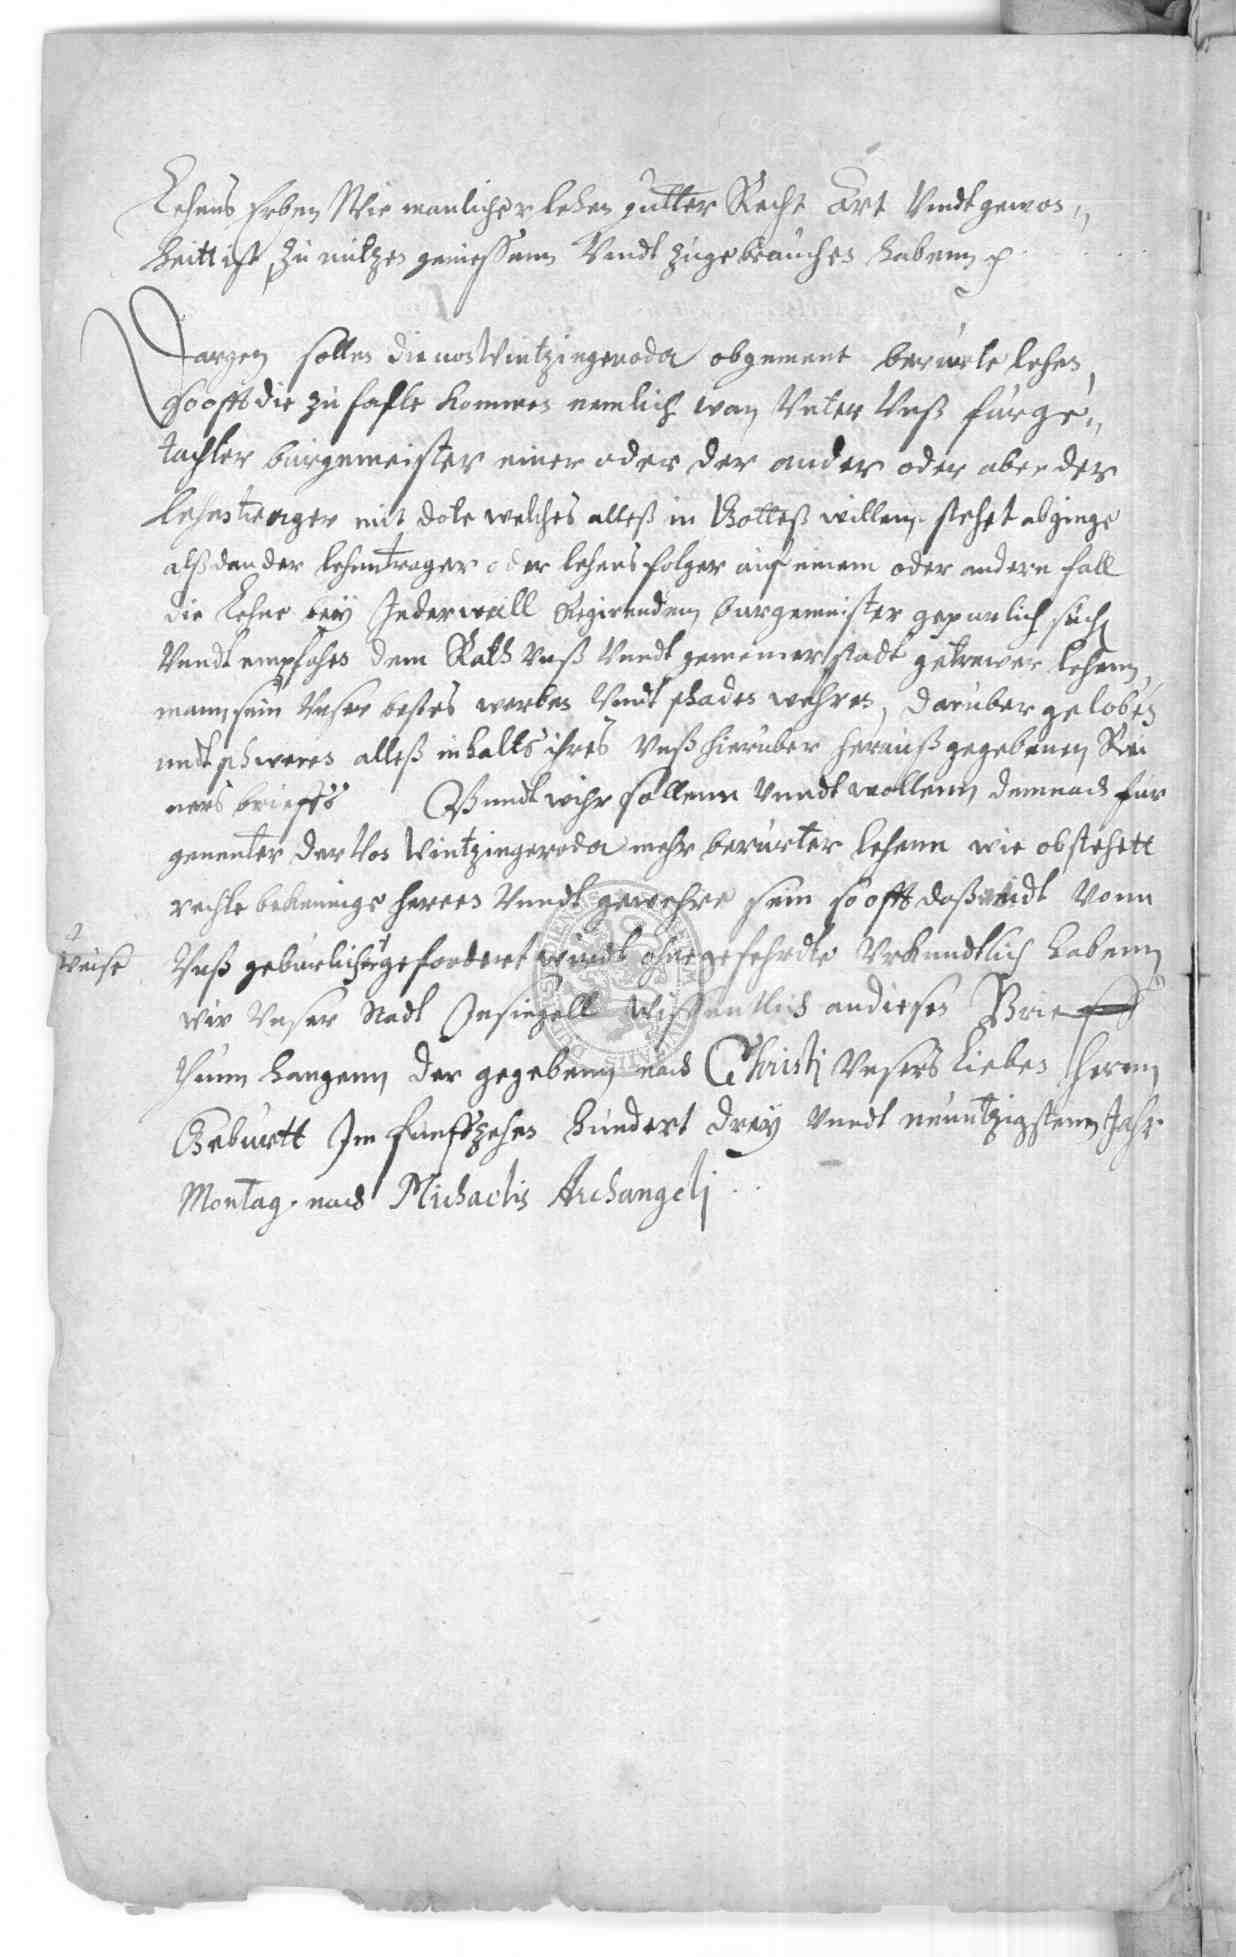 Lehens Erben Wie manlicher lehen gutter Recht Art Vndt gewon„
heitt ist, zu nutzen geniessenn Vndt zugebrauchen habenn p
Dargegen sollen die von Wintzingeroda obgemeut berurte lehen,
so offt die zu falle kommen nemlich wan Vnter Vnß furge„
dachter burgemeister einer oder der ander oder aber der
Lehentreger mit dote welches alleß in Gotteß willenn stehet abginge
alßdan der lehentrager oder lehensfolger auf einem oder andern fall
die Lehne bey Jederweill Regirendem burgemeister gepurlich such
Vnndt empfahen dem Rath Vnß Vnndt gemeiner stadt getrewer lehenn,
mann sein Vnser bestes werben Vndt schaden wehren, daruber geloben
undt schweren alleß inhalts ihres Vnß hieruber herauß gegebenen Re
uers brieffs Vnndt wihr sollenn Vnndt wollenn demnach fur
genenter der Von Wintzingeroda mehr berurter lehenn wie obstehett
rechte bekennige herren Vnndt gewehre sein so offt daß nicht Vonn
Weise
Vnß geburlicher gefordert wirdt ohne gefehrdte Vrkundtlich habenn
wir Vnser Stadt Insiegell Wissentlich an diesen Brieff
thunn hangenn Der gegebenn nach Christi Vnsers Lieben Herrn
Geburtt Im funffzehen hundert drey Vnndt neuntzigstenn Jahr
Montag nach Michaelis Archangeli